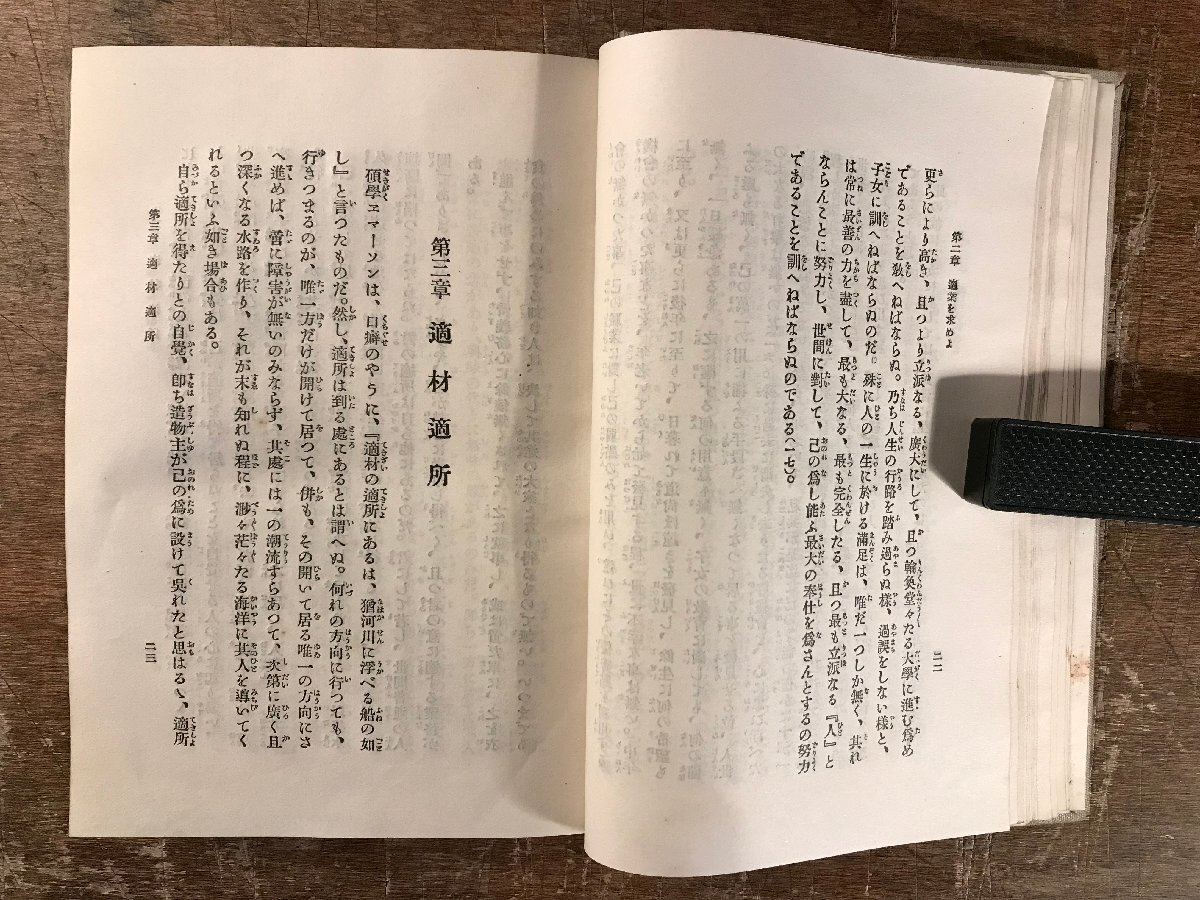 第二章　適業を求めよ
二二
更らにより高き、且つより立派なる、廣大にして、且つ輪奐堂々たる大學に進む爲め
であることを敎へねばならぬ。乃ち人生の行路を踏み過らぬ樣、過誤をしない樣と、
子女に訓へねばならぬのだ。殊に人の一生に於ける滿足は、唯だ一つしか無く、其れ
は常に最善の力を盡して、最も大なる、最も完全したる、且つ最も立派なる『人』と
ならんことに努力し、世間に對して、己の爲し能ふ最大の奉仕を爲さんとするの努力
であることを訓へねばならぬのである(一七)。
第三章　適材適所
碩學エマーソンは、口癖のやうに、『適材の適所にあるは、猶河川に浮べる船の如
し』と言つたものだ。然し、適所は到る處にあるとは謂へぬ。何れの方向に行つても、
行きつまるのが、唯一方だけが開けて居つて、併も、その開いて居る唯一の方向にさ
へ進めば、啻に障害が無いのみならず、其處には一の潮流すらあつて、次第に廣く且
つ深くなる水路を作り、それが末も知れぬ程に、渺々茫々たる海洋に其人を導いてく
れるといふ如き場合もある。
自ら適所を得たりとの自覺、卽ち造物主が己の爲に設けて吳れたと思はるゝ、適所
第三章　適材適所
二三